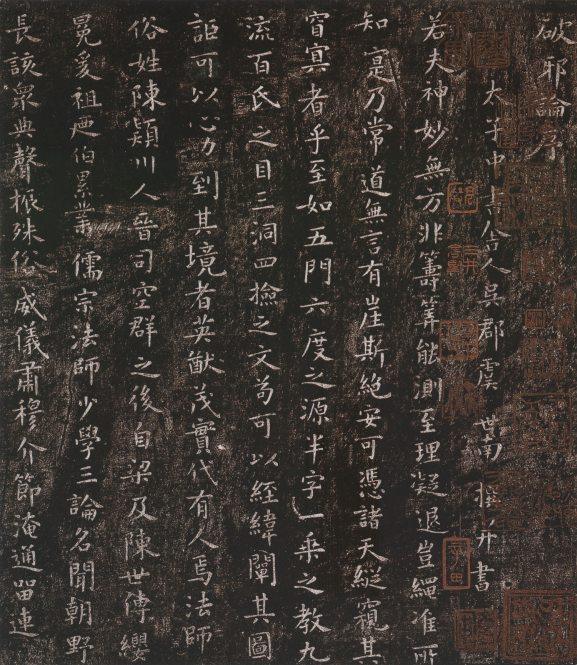 破邪論序
太子中書舍人吳郡虞世南撰并書
若夫神妙無方非籌筭能測至理凝退豈繩准所
知寔乃常道無言有崖斯絶安可憑諸天縱窺其
窅冥者乎至如五門六度之源半字一乘之教九
流百氏之目三洞四撿之文苟可以經緯闡其圖
詎可以心力到其境者英猷茂實代有人焉法師
俗姓陳潁川人晉司空群之後自梁及陳世傳纓
冕爰祖及伯累業儒宗法師少學三論名聞朝野
長該衆典聲振殊俗威儀肅穆介節淹通留連